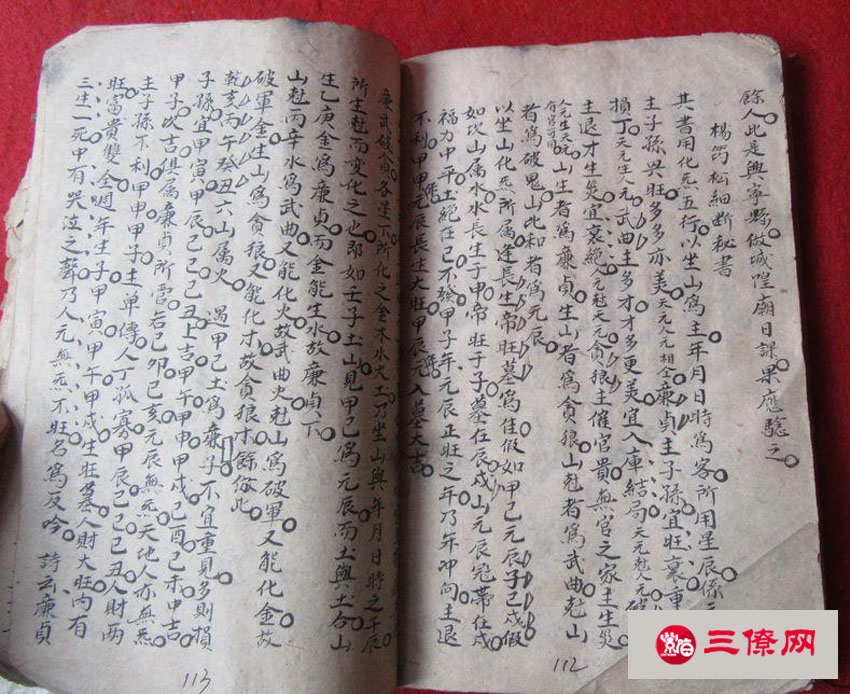 餘人此是興寧縣做城隍廟日課果應驗之
楊筠松細断秘書
其書用化炁五行以坐山爲主年月日時爲客所用星辰係
主子孫兴旺多多亦美天元人元相全廉貞主子孫宜旺衰重
損丁天元生人元武曲主多才才多更美宜入庫結局天元尅人元破
主退才生災宜衰絶人元尅天元貪狼主催官貴無官之家主生災
人元生天元山生者爲廉貞生山者爲貪狼山尅者爲武曲尅山
有官可用
者爲破鬼山比和者爲元辰
以坐山化炁所属逢長生帝旺墓爲佳假如甲己元辰子己戌假
如坎山属水水長生子申帝旺于子墓在辰戌山元辰冠帶在戌
福力中平土絶在己不發甲子年元辰正旺之年乃年冲向主退
不利甲申元辰長生大旺甲辰元入墓大吉
112
廉武破貪各星下所化之金木水火土乃坐山與年月日時之干辰
所生尅而变化之也即如壬子土山見甲己爲元辰而土與土合山
生乙庚金爲廉貞而金能生水故廉貞下
山尅丙辛水爲武曲又能化火故武曲火尅山爲破軍又能化金故
破軍金生山爲貪狼又能化木故貪狼木餘倣此
乾亥丙午癸丑六山属火 遇甲己土爲廉子不宜重見多則損
子孫宜甲寅甲辰己己己丑上吉甲午甲申甲戌己酉己未中吉
甲子次吉俱属廉貞所管若己卯己亥元辰無炁天地人亦無炁
主子孫不利甲甲甲子主单傳人丁孤寡甲辰己己己丑人財两
旺富貴雙全週年生子甲寅甲午甲戌生旺墓人財大旺内有
三生一死甲有哭泣之聲乃人元無炁不旺名爲反吟 詩云廉貞
113
三僚网